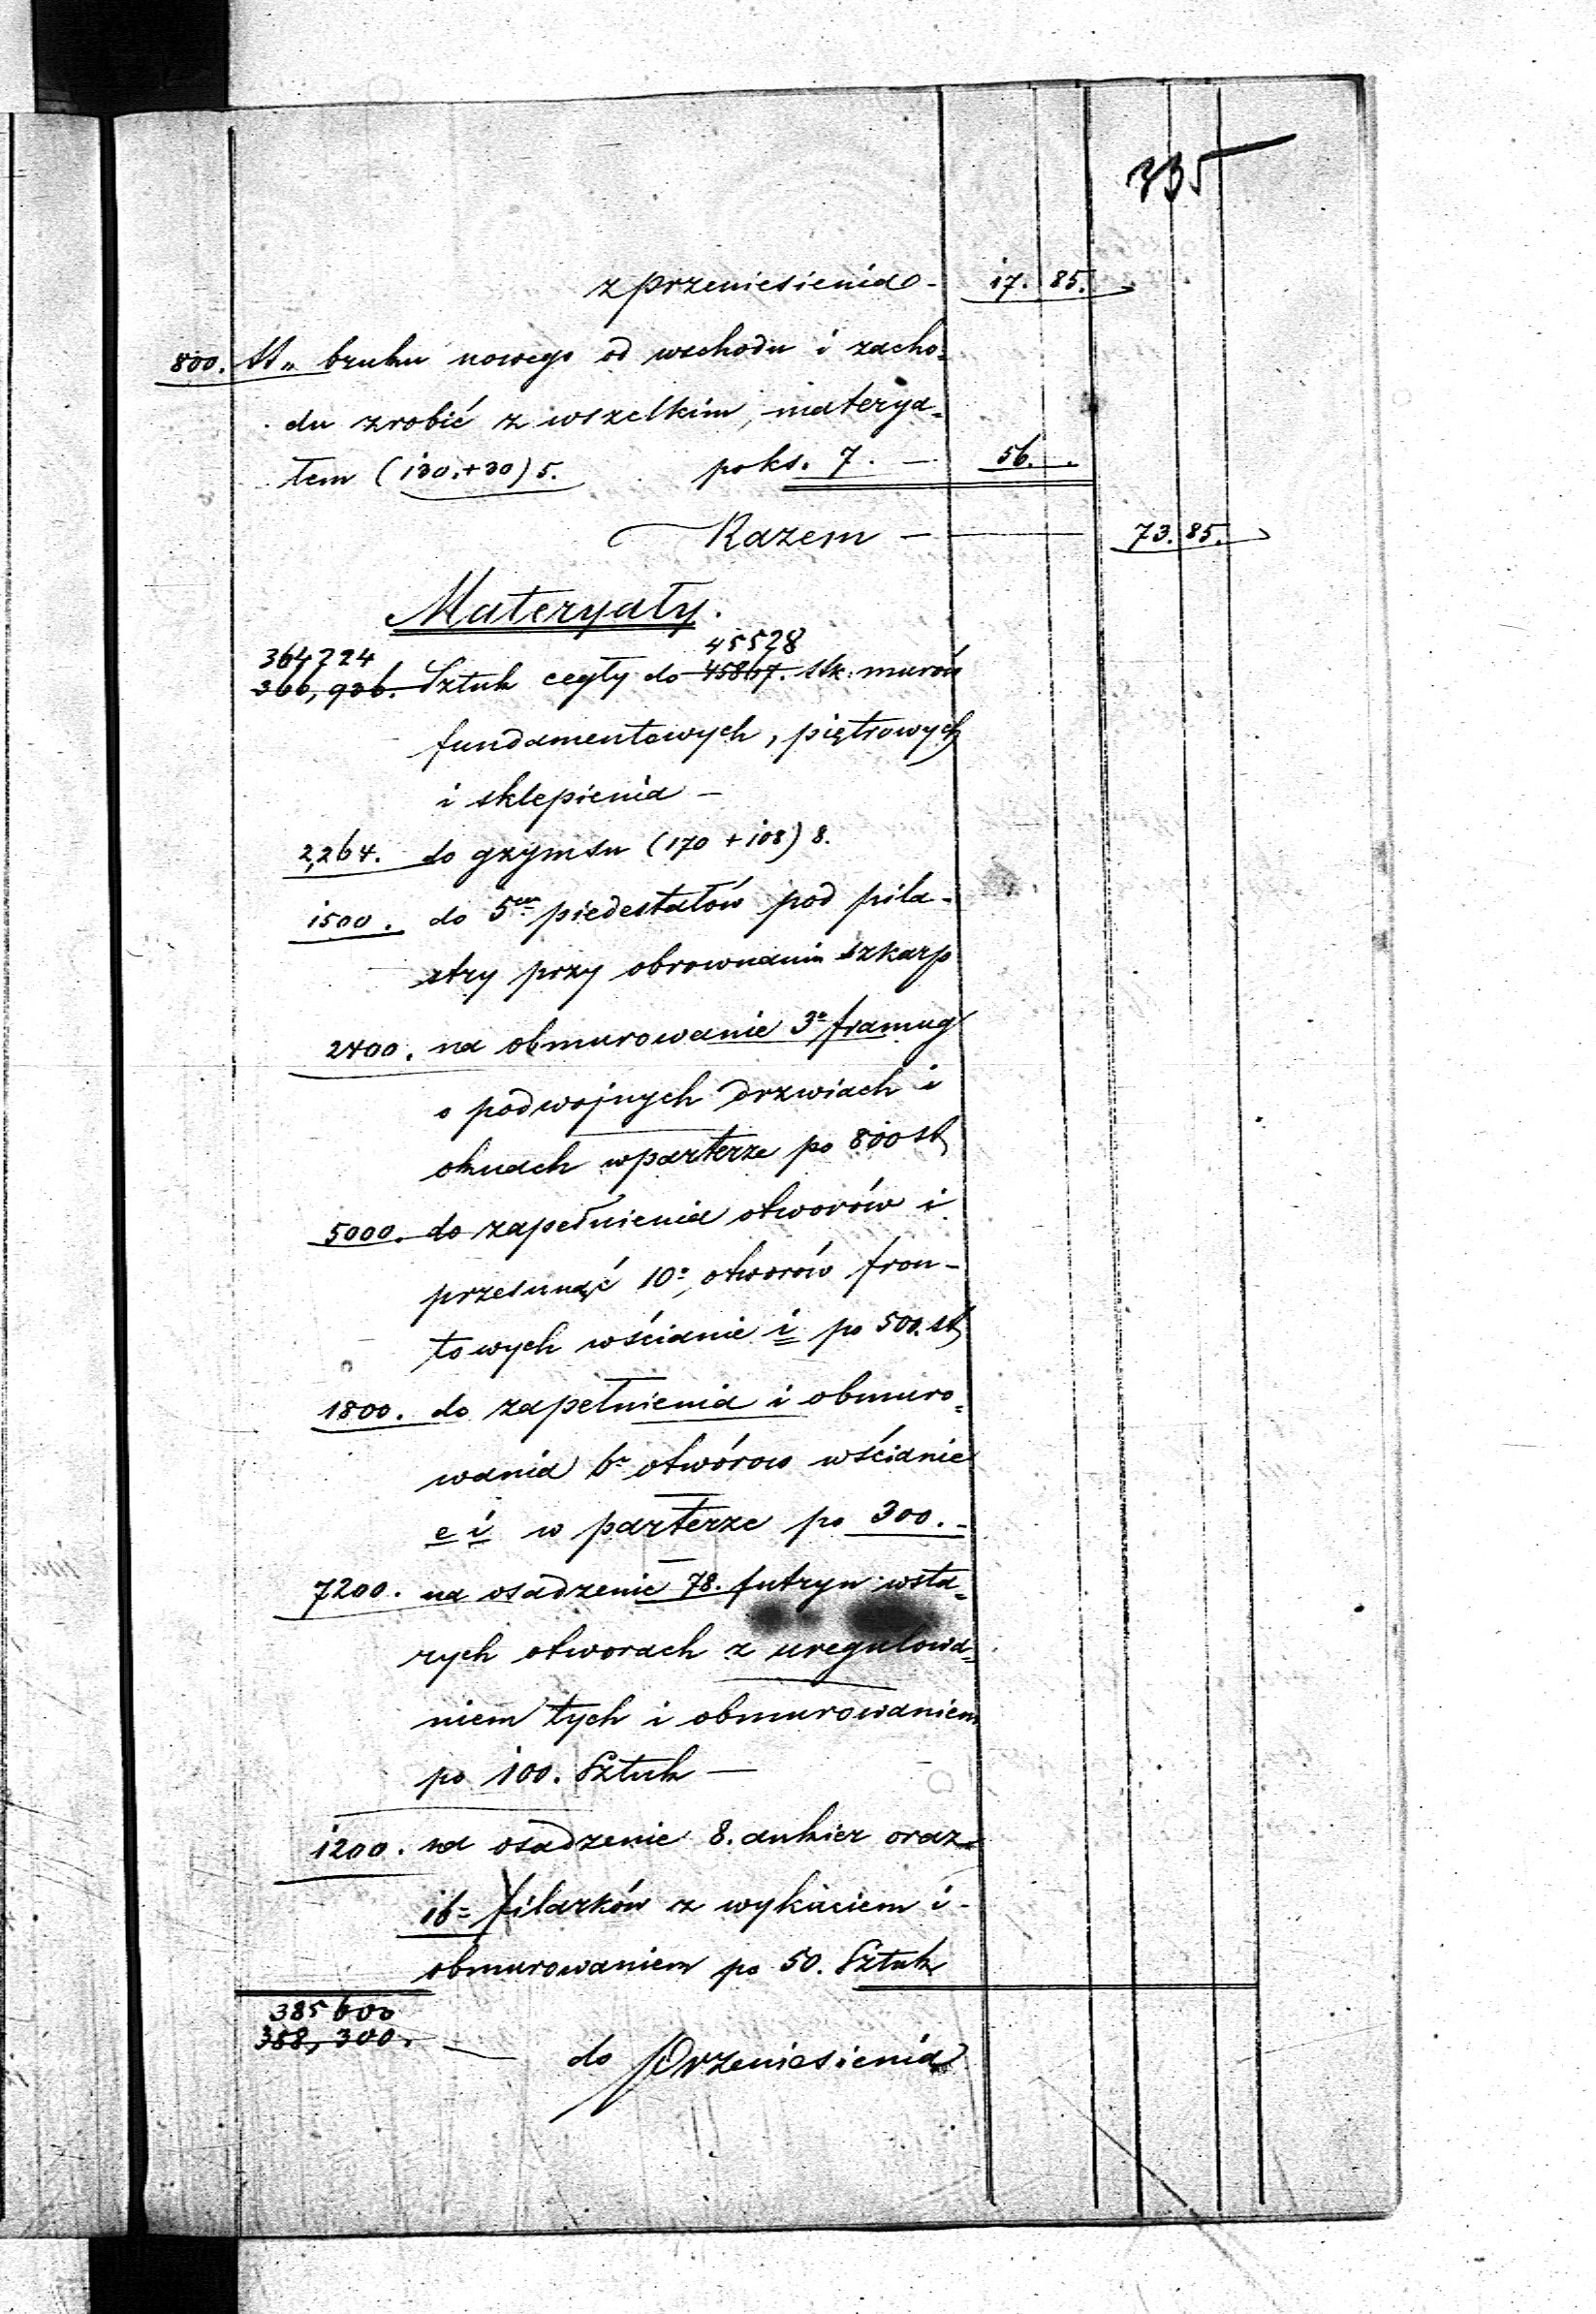 335
z przeniesienia - 17. 85.
800. bruku nowego od wschodu i zacho=
du zrobić z wszelkim materya=
łem (130.+30) 5. po ks. 7. — 56. .
Razem — 73. 85.
Materyały.
364224 45528
366,936. Sztuk cegły do 45867. stk. murów
fundamentowych, piętrowych
i sklepienia —
2,264. do gzymsu (170 + 108) 8.
1500. do 5 piedestałów pod pila-
stry przy obrownaniu szkarp
2400. na obmurowanie 3 framug
o podwojnych drzwiach i
oknach w parterze po 800 st
5000. do zapełnienia otworów i
przesunąć 10 otworów fron-
towych wścianie i po 500. st
1800. do zapełnienia i obmuro=
wania 6 otwórow wścianie
e i w parterze po 300. -
7200. na osadzenie 78. futryn wsta=
rych otworach z uregulowa=
niem tych i obmurowaniem
po 100. Sztuk —
1200. na osadzenie 8. ankier oraz
16= filarków z wykuciem i -
obmurowaniem po 50. Sztuk
385600
388,300. — do Przeniesienia